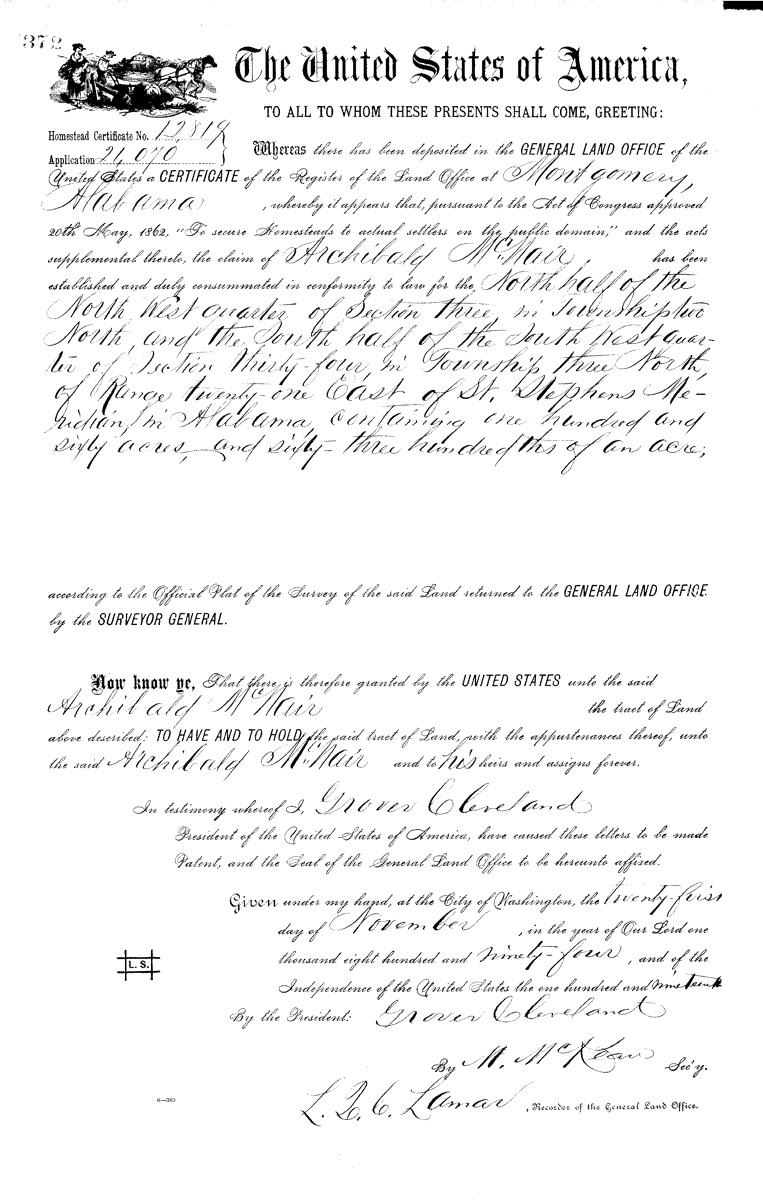 372
The United States of America,
TO ALL TO WHOM THESE PRESENTS SHALL COME, GREETING:
Homestead Certificate No. 12819
Application 21,070
Whereas there has been deposited in the GENERAL LAND OFFICE of the
United States a CERTIFICATE of the Register of the Land Office at Montgomery,
Alabama, whereby it appears that, pursuant to the Act of Congress approved
20th May, 1862, "To secure Homesteads to actual settlers on the public domain," and the acts
supplemental thereto, the claim of Archibald McNair has been
established and duly consummated in conformity to law for the North half of the
North West quarter of Section three, in Township two
North, and the South half of the South West quar-
ter of Section thirty-four, in Township three North,
of Range twenty-one East of St. Stephens Me-
ridian, in Alabama, containing one hundred and
sixty acres, and sixty-three hundredths of an acre,
according to the Official Plat of the Survey of the said Land returned to the GENERAL LAND OFFICE
by the SURVEYOR GENERAL.
Now know ye, That there is therefore granted by the UNITED STATES unto the said
Archibald McNair the tract of Land
above described: TO HAVE AND TO HOLD the said tract of Land, with the appurtenances thereof, unto
the said Archibald McNair and to his heirs and assigns forever.
In testimony whereof I, Grover Cleveland
President of the United States of America, have caused these letters to be made
Patent, and the Seal of the General Land Office to be hereunto affixed.
Given under my hand, at the City of Washington, the twenty-first
day of November, in the year of Our Lord one
thousand eight hundred and ninety-four, and of the
L. S.
Independence of the United States the one hundred and nineteenth
By the President: Grover Cleveland
By M. McKean Sec'y.
6—380
L. Q. C. Lamar, Recorder of the General Land Office.